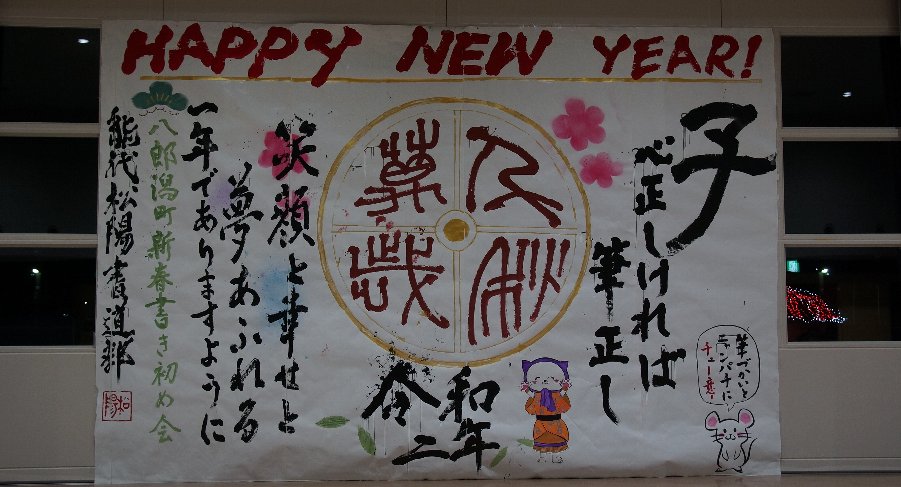 HAPPY NEW YEAR!
子
心正しければ
筆正し
千秋
萬歳
令和
二年
笑顔と幸せと
夢あふれる
一年でありますように
八郎潟町新春書き初め会
能代松陽書道部
筆づかいと
チュー意!